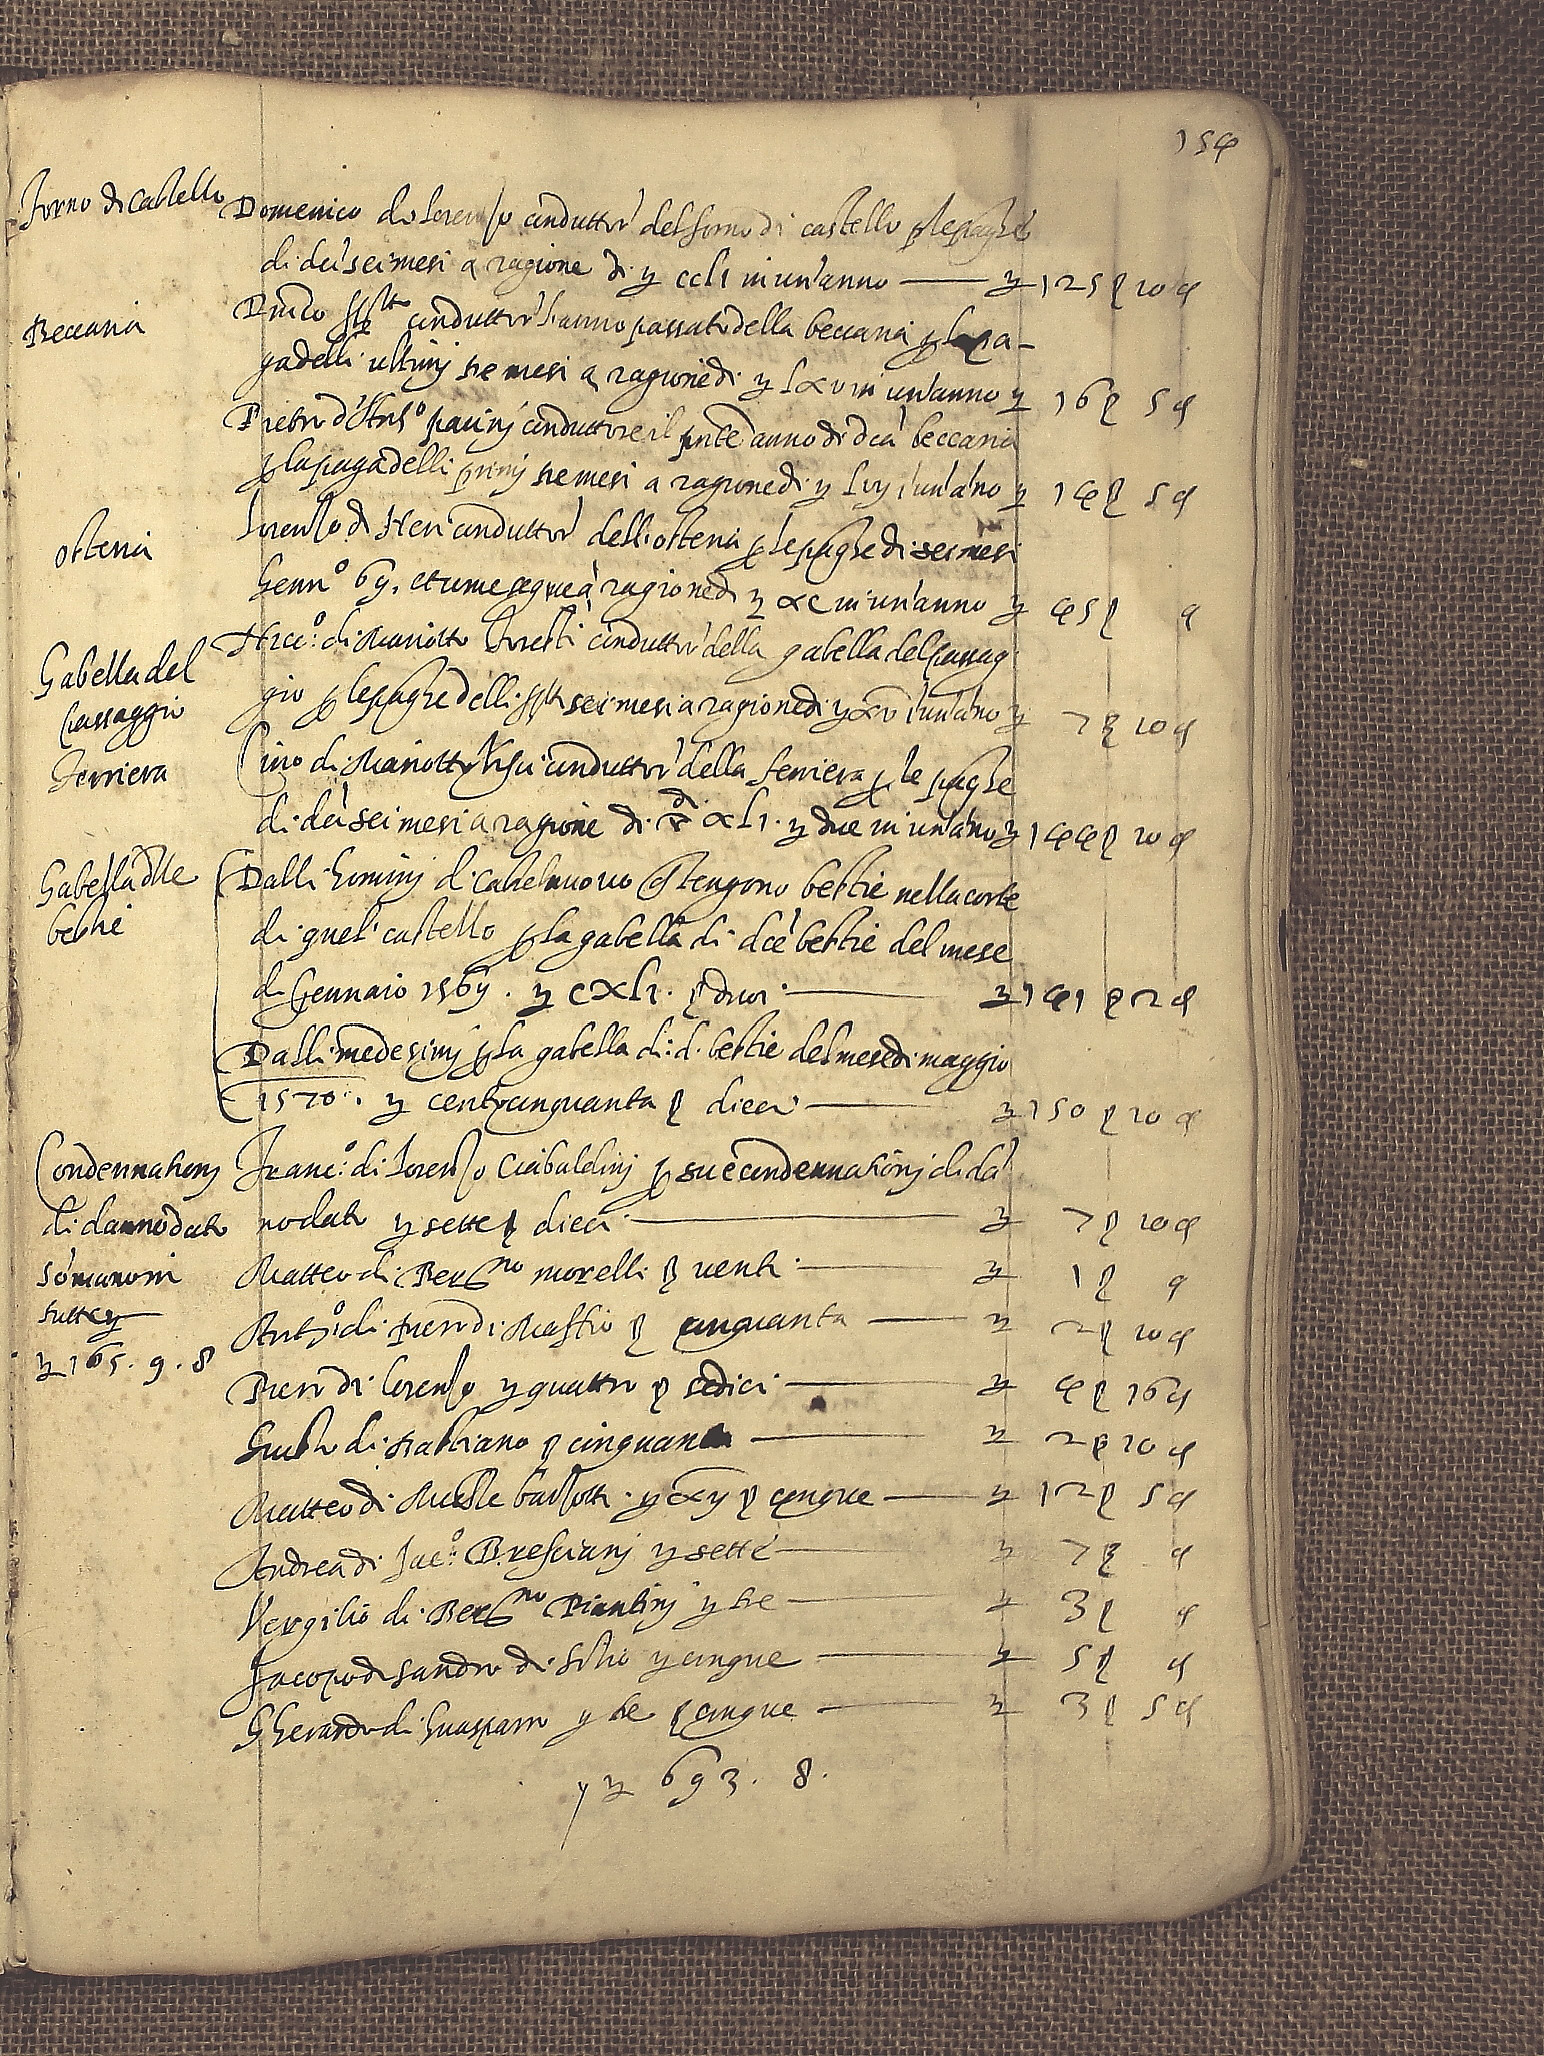 154
Forno di castello
Domenico di Lorenzo conduttor' del forno di castello p le paghe
di dei sei mesi a ragione di £ ccli in un'anno — £ 125 ß 10 d
Beccaria
conduttor' l'anno passato della beccaria p la pa-
ga delli ultimj tre mesi a ragione di £ lxv in un'anno £ 16 ß 5 d
Pietro d'Ant° pacinj conduttore il pnte anno di dca beccaria
p la paga delli primj tre mesi a ragione di £ lvij in un'ano £ 14 ß 5 d
osteria
Lorenzo di Neri conduttor' dell'osteria p le paghe di sei mesi
Genn° 69. et come segue a ragione di £ xc in un'anno £ 45 ß d
Gabella del
passaggio
Nicc:° di Mariotto conduttor' della gabella del passag
gio p le paghe delli sei mesi a ragione di £ xv in un'ano £ 7 ß 10 d
Ferriera
Cino di Mariotto conduttor' della ferriera p le paghe
di dei sei mesi a ragione di xli. £ due in un'ano £ 144 ß 10 d
Gabella dlle
bestie
Dalli hominj di castelnuovo ch tengono bestie nella corte
di quel castello p la gabella di dce bestie del mese
di Gennaio 1569. £ cxli. ß duoi — £ 141 ß 2 d
Dalli medesimj p la gabella di d. bestie del mese di maggio
1570. £ centocinquanta ß dieci — £ 150 ß 10 d
Condennationj
di danno dato
somanoni
tutte £
£ 165. 9. 8
Franc:° di Lorenzo Ciabaldinj p sue condennationj di da
no dato £ sette ß dieci — £ 7 ß 10 d
Matteo di Bergno morelli ß venti — £ 1 ß d
Ant°: di piero di Maffio ß cinquanta — £ 2 ß 10 d
Piero di Lorenzo £ quattro ß sedici — £ 4 ß 16 d
Giusto di fabbiano ß cinquanta — £ 2 ß 10 d
Matteo di Michele £ xij ß cinque — £ 12 ß 5 d
Andrea di Jac:° Brescianj £ sette — £ 7 ß d
Vergilio di Bergno Piantinj £ tre — £ 3 ß d
Jacopo di sandro di £ cinque — £ 5 ß d
Gherardo di Guasparri £ tre ß cinque — £ 3 ß 5 d
£ 693. 8.